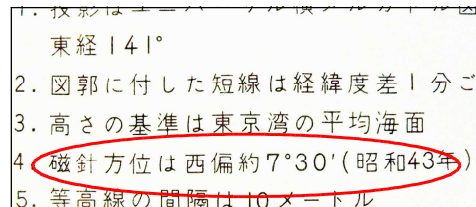 1. 投影はユニバーサル横メルカトル図
東経141°
2. 図郭に付した短線は経緯度差1分ご
3. 高さの基準は東京湾の平均海面
4 磁針方位は西偏約7°30′(昭和43年)
5. 等高線の間隔は10メートル